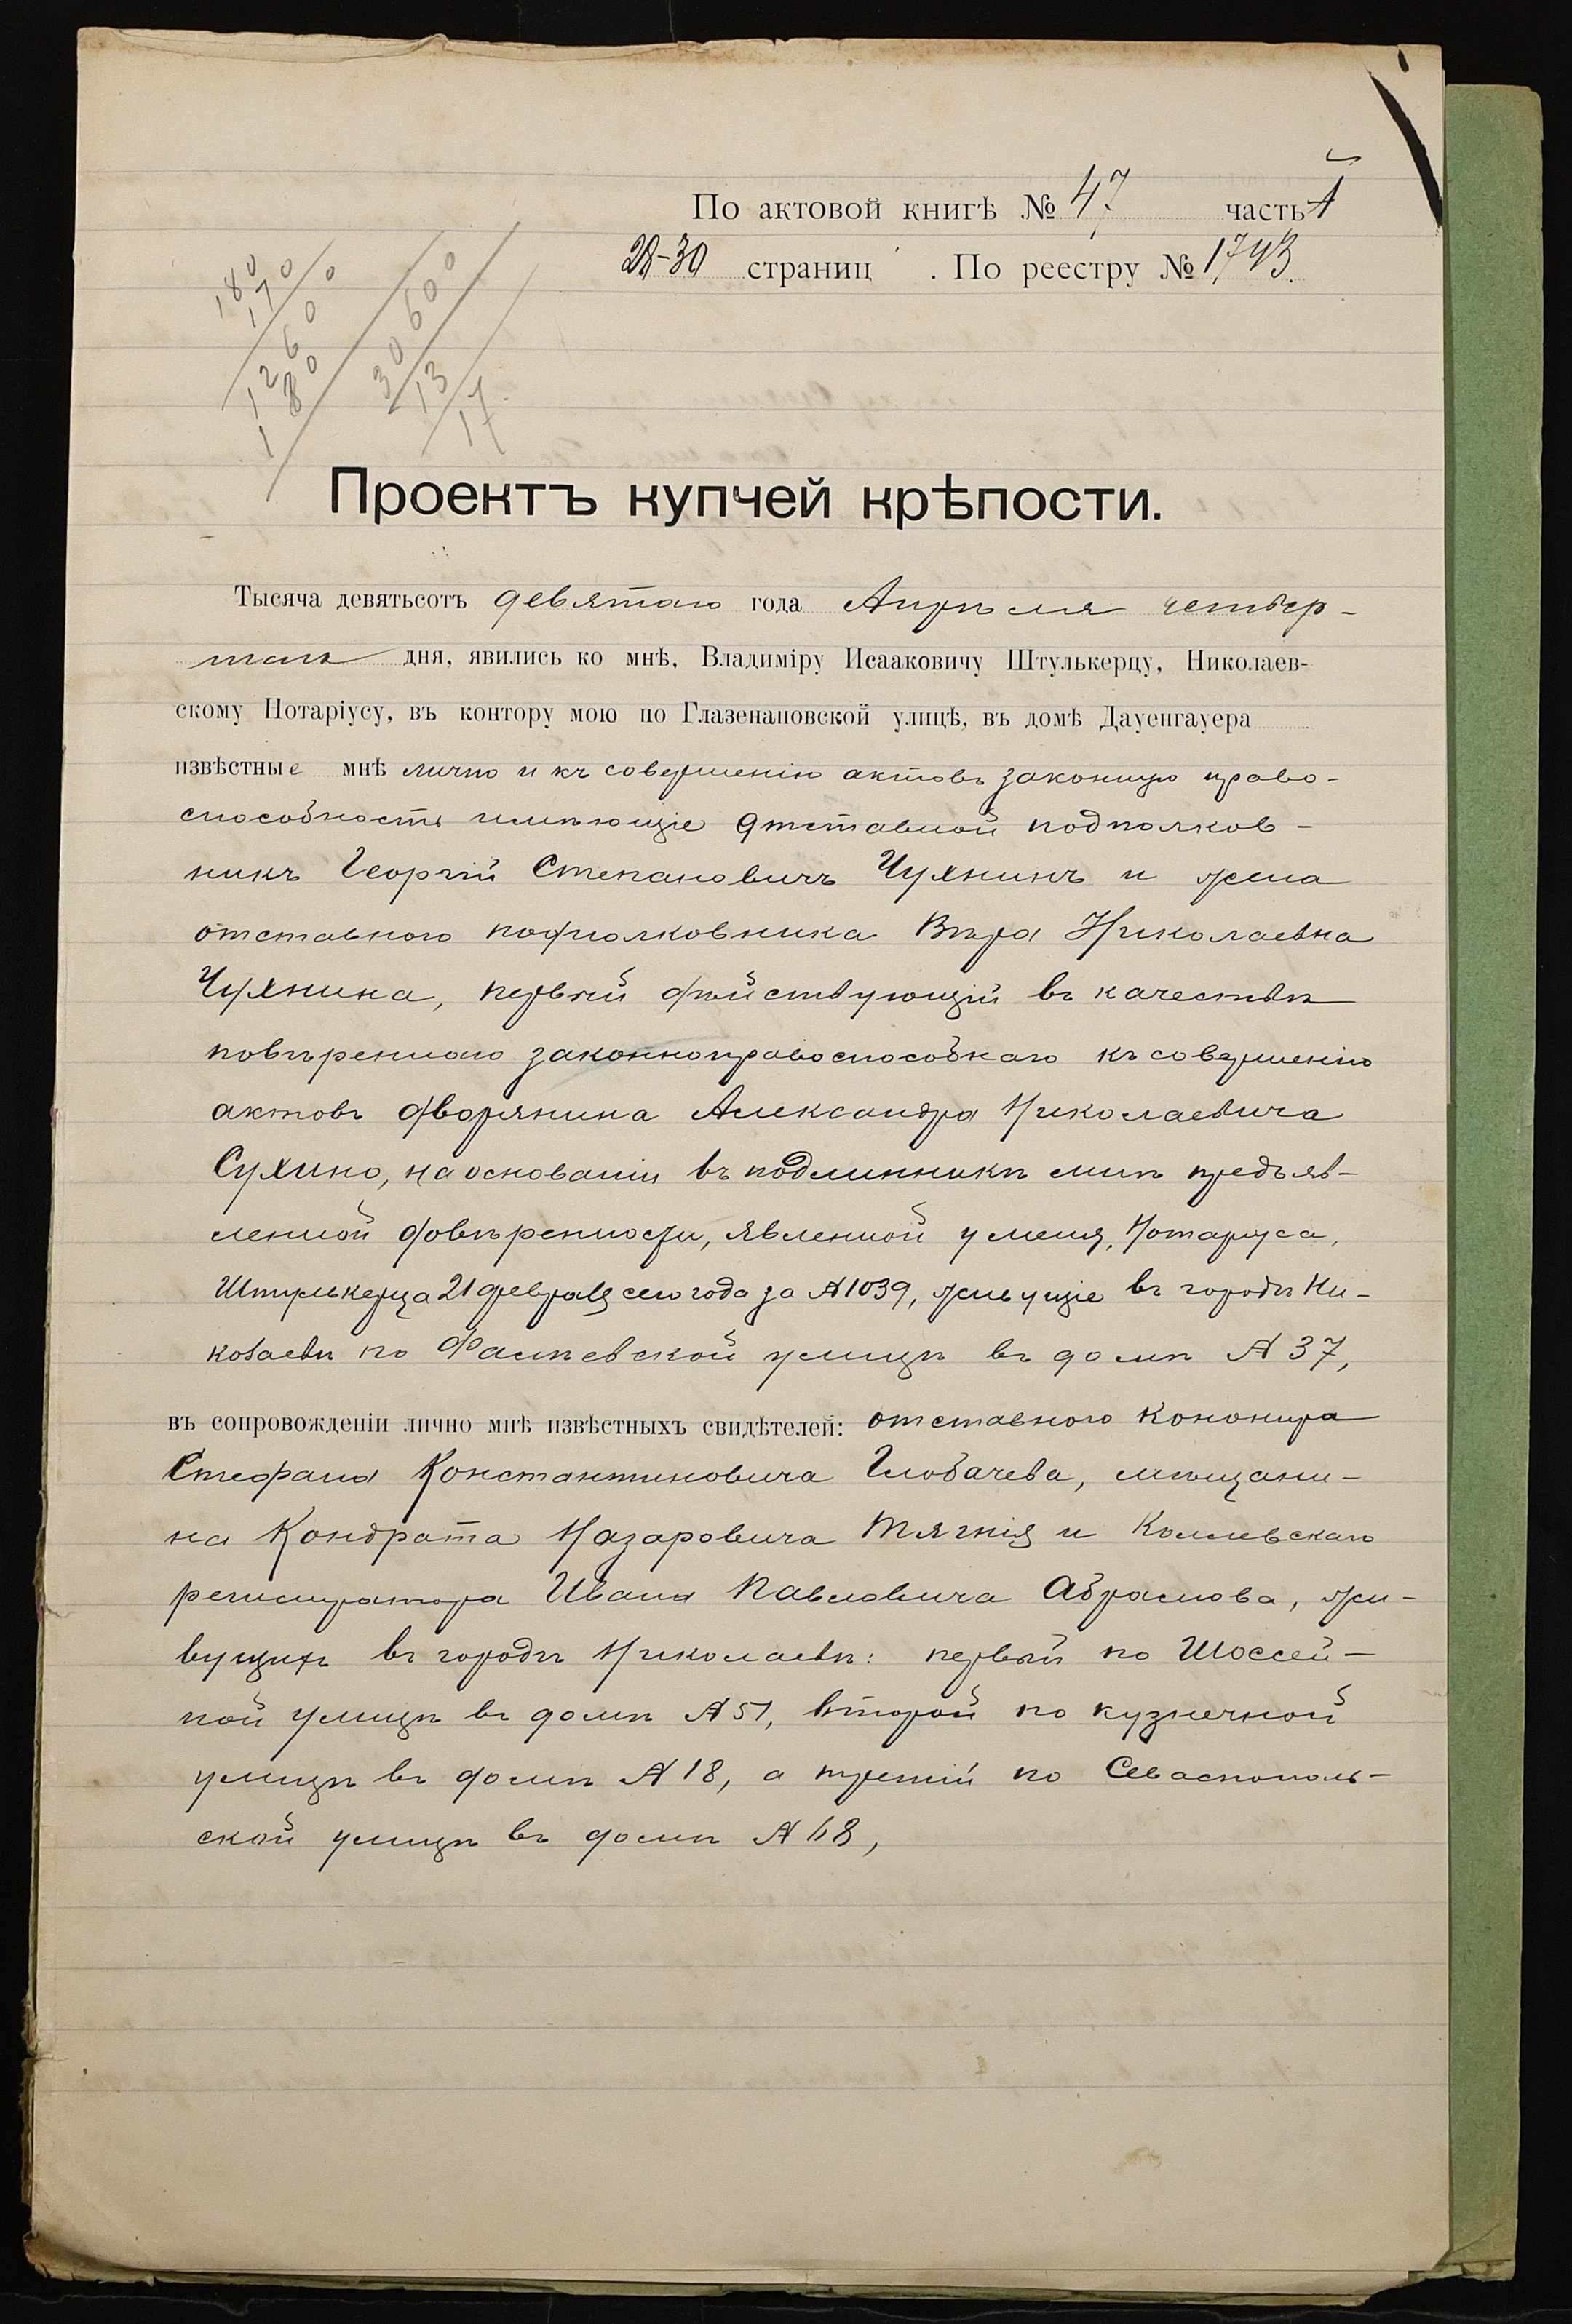 По актовой книгѣ № 47 часть 1
28-30 страниц . По реестру № 1743
180
170
12600
180
30600
13
17
Проектъ купчей крѣпости.
Тысяча девятьсотъ девятаго года Апрѣля четвер-
таго дня, явились ко мнѣ, Владиміру Исааковичу Штулькерцу, Николаев-
скому Нотаріусу, въ контору мою по Глазенаповской улицѣ, въ домѣ Дауенгауера
извѣстные мнѣ лично и къ совершенію актовъ законную право-
способность имѣющіе Отставной подполков-
никъ Георгій Степановичъ Чухнинъ и жена
отставного подполковника Вѣра Николаевна
Чухнина, первый дѣйствующій въ качествѣ
повѣреннаго законноправоспособнаго къ совершенію
актовъ дворянина Александра Николаевича
Сухино, на основаніи въ подлинникѣ мнѣ предъяв-
ленной довѣренности, явленной у меня, Нотаріуса,
Штулькерца 21 февраля сего года за № 1039, живущіе въ городѣ Ни-
колаевѣ по Фалѣевской улицѣ въ домѣ № 37,
въ сопровожденіи лично мнѣ извѣстныхъ свидѣтелей: отставного Канонира
Стефана Константиновича Глобачева, мѣщани-
на Кондрата Назаровича Тягнія и Коллежскаго
регистратора Ивана Павловича Абрамова, жи-
вущихъ въ городѣ Николаевѣ: первый по Шоссей-
ной улицѣ въ домѣ № 51, второй по кузнечной
улицѣ въ домѣ № 18, а третій по Севастополь-
ской улицѣ въ домѣ № 68,